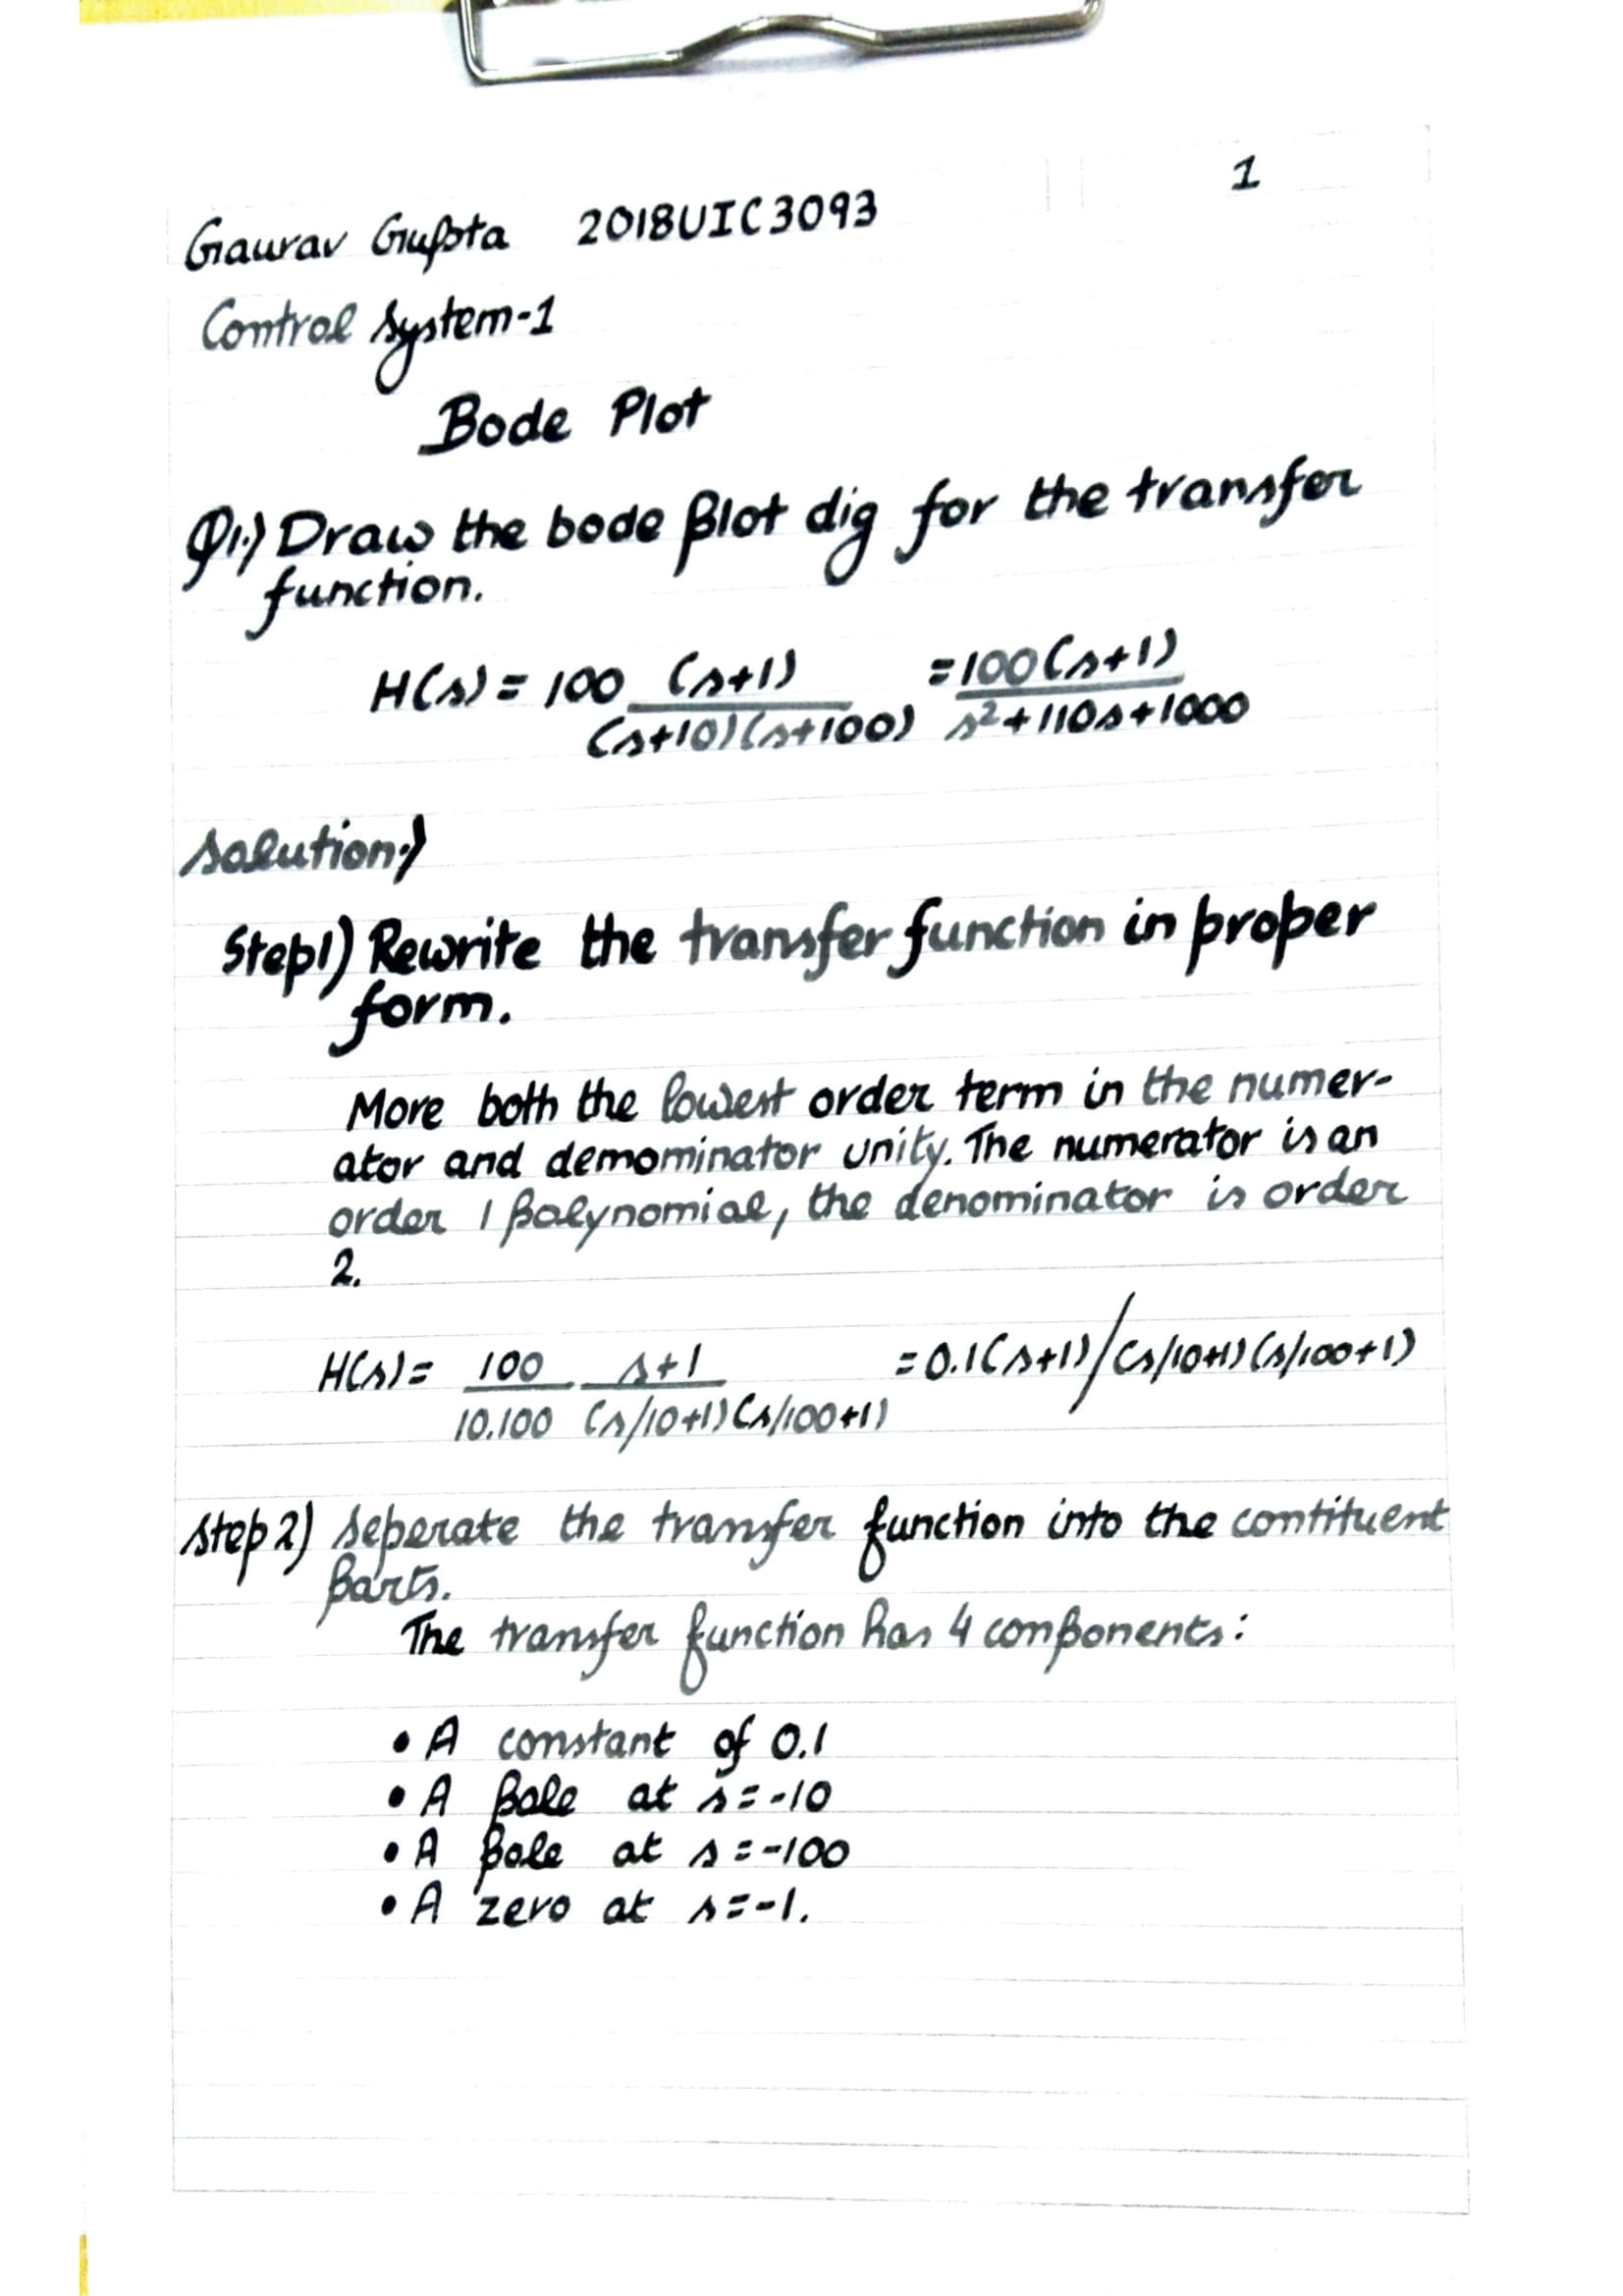 1
Gaurav Gupta 2018UIC3093
Control System-1
Bode Plot
Q1.) Draw the bode plot dig for the transfer
function.
H(s) = 100 (s+1) / (s+10)(s+100) = 100(s+1) / s²+110s+1000
Solution:)
Step1) Rewrite the transfer function in proper
form.
More both the lowest order term in the numer-
ator and demominator unity. The numerator is an
order 1 polynomial, the denominator is order
2.
H(s) = 100 / 10.100 s+1 / (s/10+1)(s/100+1) = 0.1(s+1)/(s/10+1)(s/100+1)
Step 2) Seperate the transfer function into the contituent
parts.
The transfer function has 4 components:
• A constant of 0.1
• A pole at s=-10
• A pole at s=-100
• A zero at s=-1.